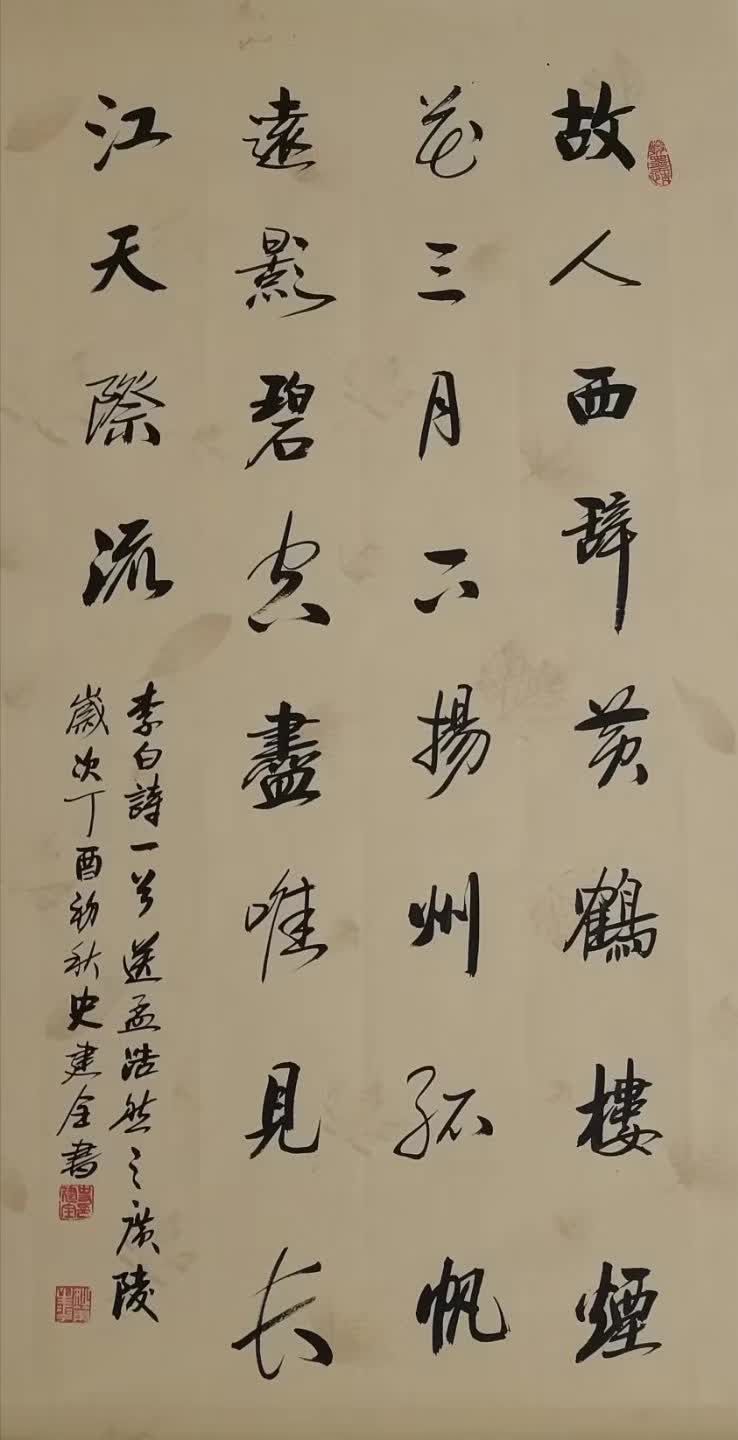 故人西辭黄鶴樓煙
花三月下揚州孤帆
遠影碧空盡唯見长
江天際流
李白詩一首送孟浩然之廣陵
歲次丁酉初秋史建全書